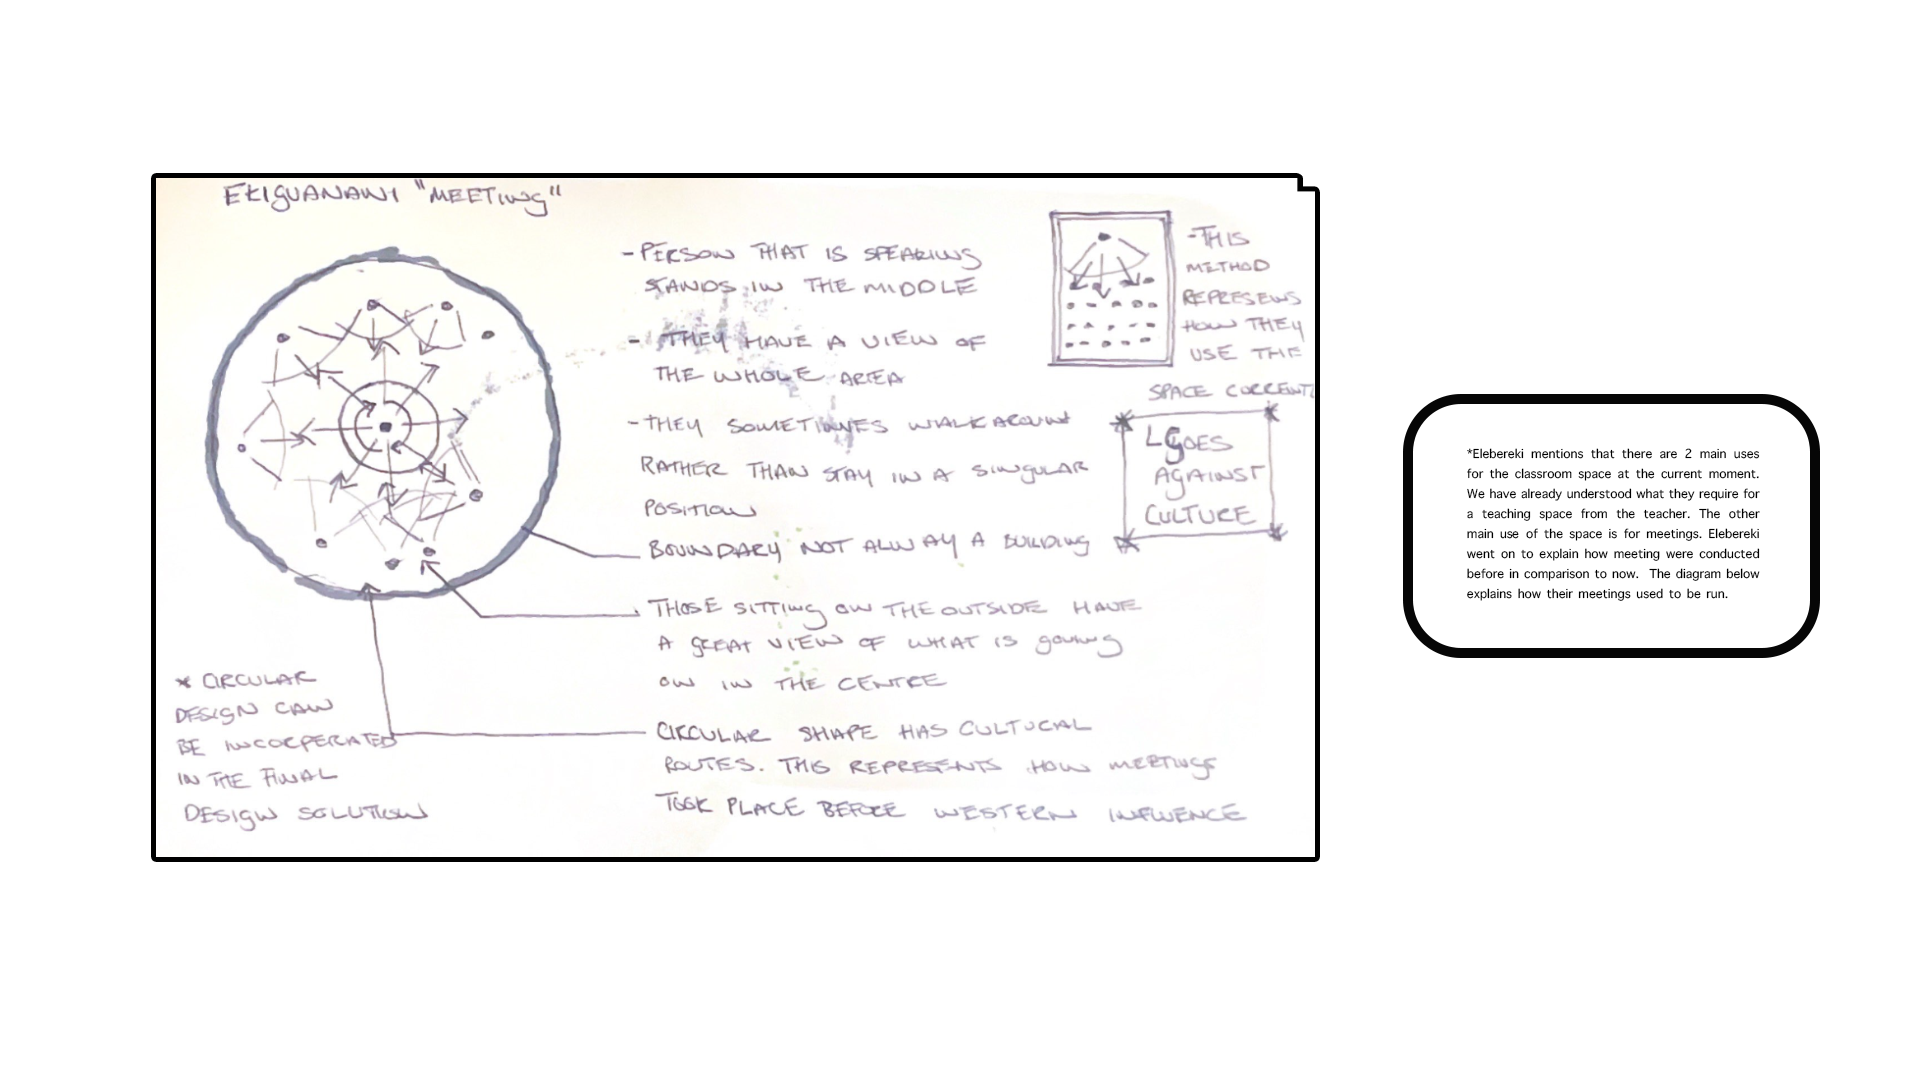 EKIGUANAWI "MEETING"
-PERSON THAT IS SPEAKING
STANDS IN THE MIDDLE
- THEY HAVE A VIEW OF
THE WHOLE AREA
-THEY SOMETIMES WALK AROUND
RATHER THAN STAY IN A SINGULAR
POSITION
BOUNDARY NOT ALWAY A BUILDING
THOSE SITTING ON THE OUTSIDE HAVE
A GREAT VIEW OF WHAT IS GOING
ON IN THE CENTRE
CIRCULAR SHAPE HAS CULTURAL
ROUTES. THIS REPRESENTS HOW MEETINGS
TOOK PLACE BEFORE WESTERN INFLUENCE
* CIRCULAR
DESIGN CAN
BE INCORPERATED
IN THE FINAL
DESIGN SOLUTION
-THIS
METHOD
REPRESENS
HOW THEY
USE THE
SPACE CURRENT
GOES
AGAINST
CULTURE
*Elebereki mentions that there are 2 main uses
for the classroom space at the current moment.
We have already understood what they require for
a teaching space from the teacher. The other
main use of the space is for meetings. Elebereki
went on to explain how meeting were conducted
before in comparison to now. The diagram below
explains how their meetings used to be run.